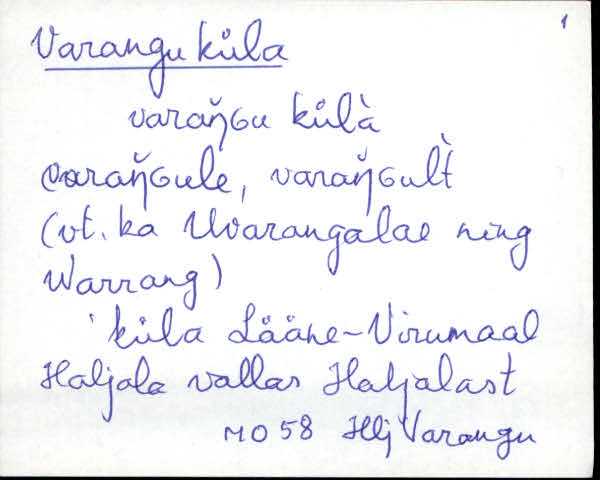 1
Varangu küla
varaŋ̆ɢu külà
varaŋ̆ɢule, varaŋ̆ɢul̀t
(vt. ka Uvarangalae ning
Warrang)
küla Lääne-Virumaal
Haljala vallas Haljalast
MO 58 Hlj Varangu